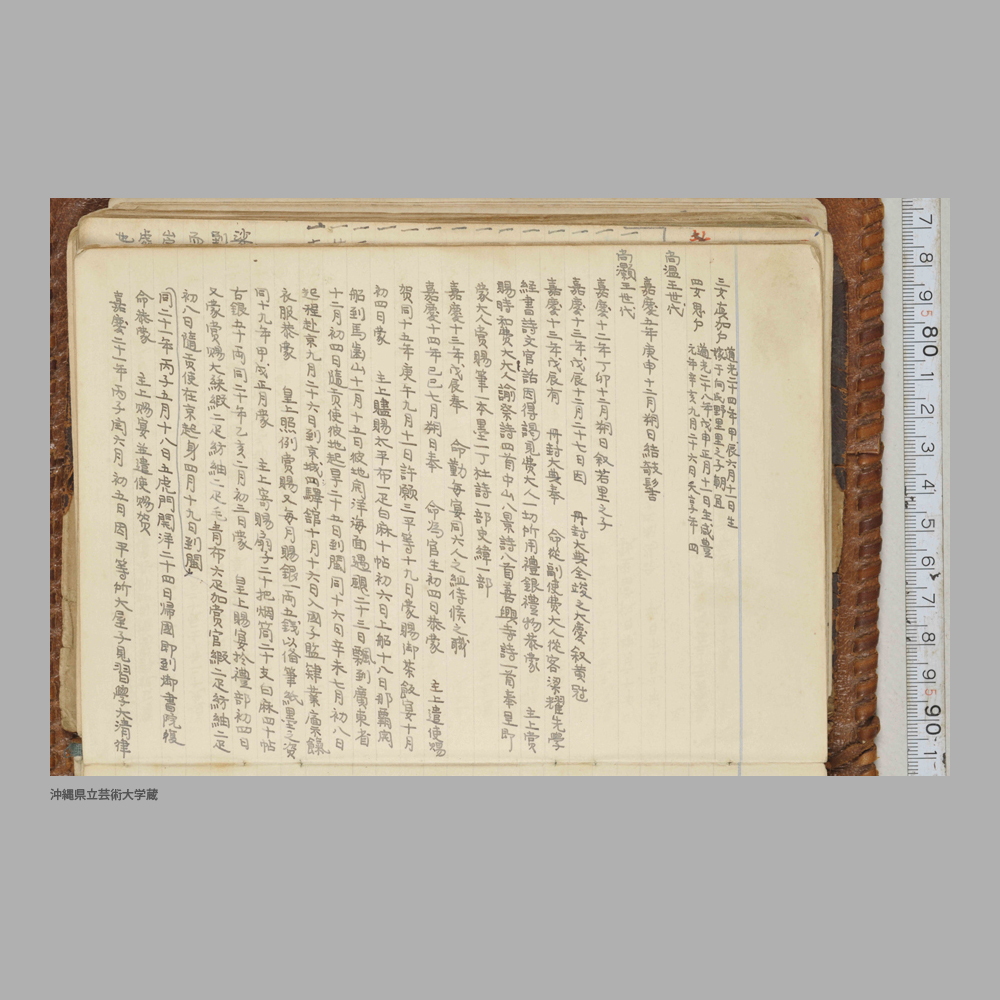 三女真加戸 道光二十四年甲辰六月十一日生
嫁于向氏野里里之子朝宜
四女思戸 道光二十八年戊申正月十一日生咸豊
元年辛亥九月二十六日夭亡享年四
尚温王世代
嘉慶五年庚申十二月朔日結敧髻
尚灝王世代
嘉慶十二年丁卯十二月朔日叙若里之子
嘉慶十三年戊辰十二月二十七日因 冊封大典全竣之大慶叙黄冠
嘉慶十三年戊辰有 冊封大典奉 命從副使費大人從客梁耀先學
經書詩文官話因得謁見費大人一切所用禮銀禮物恭蒙 主上賞
賜時和費大人諭祭詩四首中山八景詩八首嘉興寺詩一首奉呈即
蒙大人賞賜筆一本墨一丁杜詩一部吏緯一部
嘉慶十三年戊辰奉 命勤毎宴同大人之組侍候之職
嘉慶十四年己巳七月朔日奉 命為官生初四日恭蒙 主上遣使賜
賀同十五年庚午九月十二日許願三平等十九日蒙賜御茶飯宴十月
初四日蒙 主上賜太平布一疋白麻十帖初六日上船十八日那覇開
船到馬歯山十一月十五日彼地開洋海面遇颶二十三日飄到廣東省
十二月初四日隨貢使彼地起早二十五日到閩同十六日辛未七月初八日
起程赴京九月二十六日到京城四驛舘十月十六日入國子監肄業廩餼
衣服恭蒙 皇上照例賞賜又毎月賜銀一両五錢以備筆紙墨之資
同十九年甲戌正月蒙 主上寄賜扇子二十把烟筒二十支白麻四十帖
古銀五十両同二十年乙亥二月初三日蒙 皇上賜宴於禮部初四日
又蒙賞賜大綵緞二疋紡紬二疋毛青布六疋加賞官緞二疋紡紬二疋
初八日隨貢使在京起身四月十九日到閩
同二十一年丙子五月十八日五虎門開洋二十四日帰國即到御書院復
命恭蒙 主上賜宴並遣使賜賀
嘉慶二十一年丙子閏六月初五日因平等所大屋子見習學大清律
80
90
沖縄県立芸術大学蔵